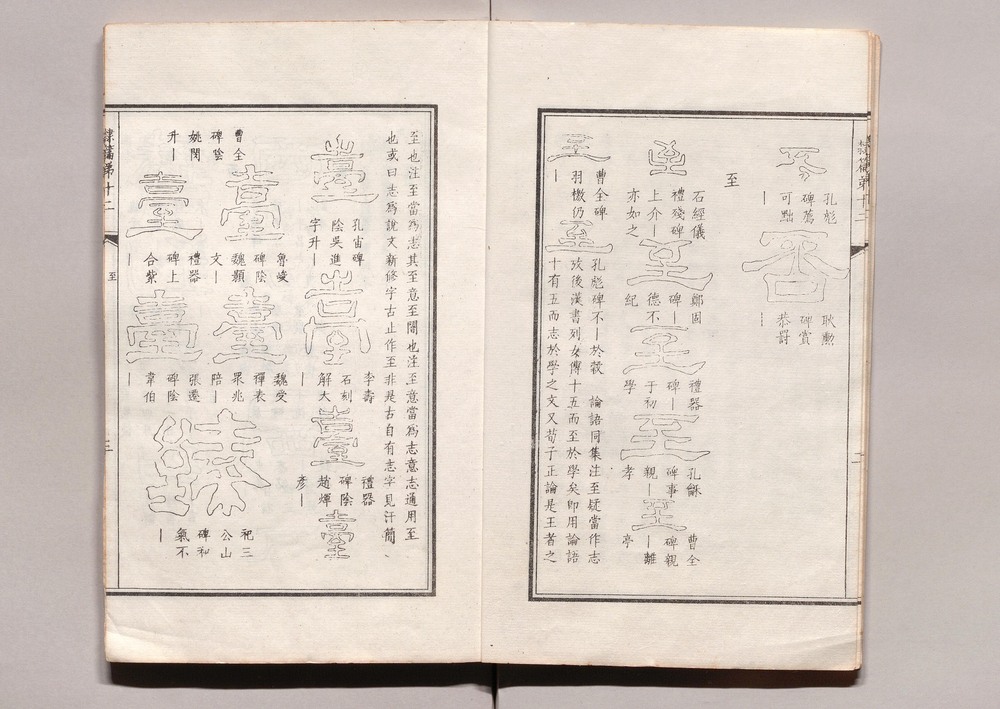 隸篇第十二
二
不 孔彪
碑蔫
可黜
—
否 耿勳
碑賞
恭罰
—
至
至 石經儀
禮殘碑
上介—
亦如之
至 鄭固
碑—
德不
紀
至 禮器
碑—
于初
學
至 孔龢
碑事
親—
孝
至 曹全
碑親
—離
亭
至 曹全碑
羽檄仍
—
至 孔彪碑不—於穀 論語同集注至疑當作志
攷後漢書列女傳十五而至於學矣即用論語
十有五而志於學之文又荀子正論是王者之
至也注至當爲志其至意至闇也注至意當爲志意志通用至
也或曰志爲說文新修字古止作至非是古自有志字見汗簡
臺 孔宙碑
陰吳進
字升—
臺 李壽
石刻
解大
—
臺 禮器
碑陰
趙煇
彦—
臺 曹全
碑陰
姚閔
升—
臺 魯峻
碑陰
魏顥
文—
臺 魏受
禪表
兆
陪—
臺 禮器
碑上
合紫
臺 張遷
碑陰
韋伯
—
臻 祀三
公山
碑和
氣不
—
隸篇第十二
至
三